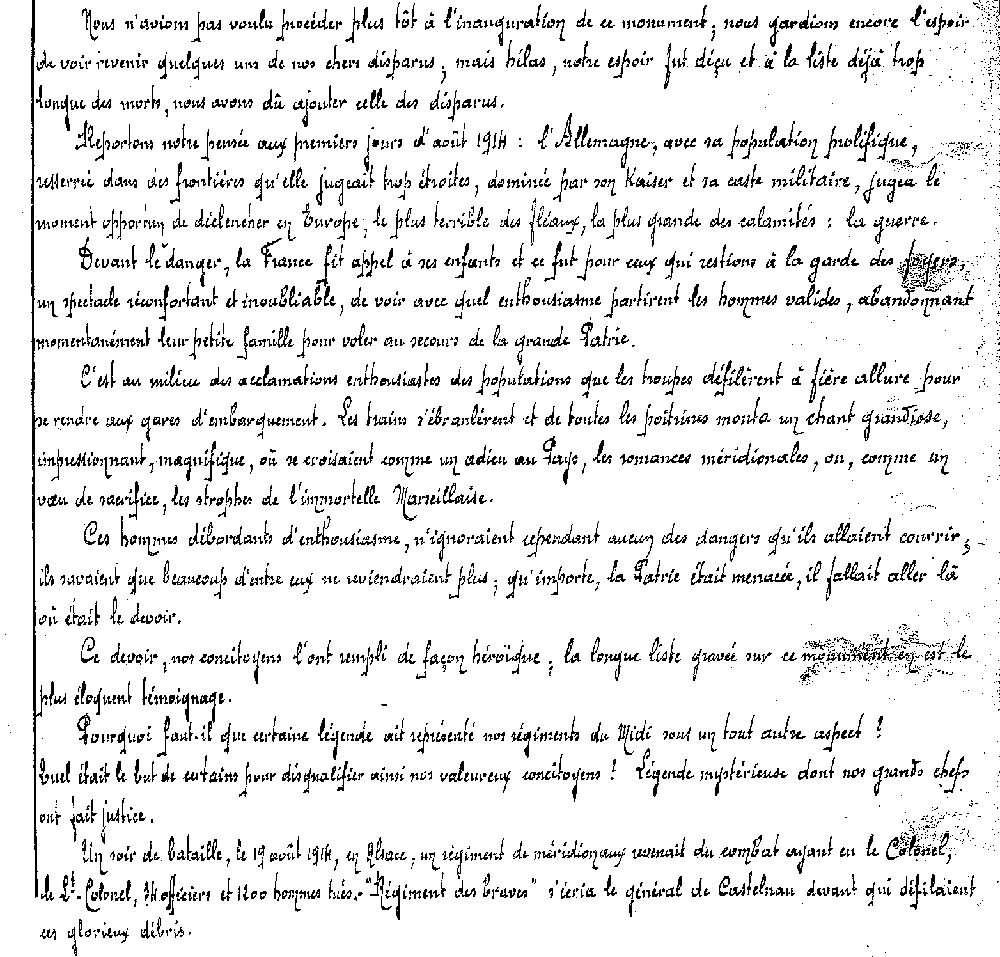 Nous n'avions pas voulu procéder plus tôt à l'inauguration de ce monument ; nous gardions encore l'espoir
de voir revenir quelques uns de nos chers disparus ; mais hélas, notre espoir fut déçu et à la liste déjà trop
longue des morts, nous avons dû ajouter celle des disparus.
Reportons notre pensée aux premiers jours d'août 1914 : l'Allemagne, avec sa population prolifique,
resserrée dans des frontières qu'elle jugeait trop étroites, dominée par son Kaiser et sa caste militaire, jugea le
moment opportun de déclencher en Europe, le plus terrible des fléaux, la plus grande des calamités : la guerre.
Devant le danger, la France fit appel à ses enfants et ce fut pour ceux qui restions à la garde des foyers,
un spectacle réconfortant et inoubliable, de voir avec quel enthousiasme partirent les hommes valides, abandonnant
momentanément leur petite famille pour voler au secours de la grande Patrie.
C'est au milieu des acclamations enthousiastes des populations que les troupes défilèrent à fière allure pour
se rendre aux gares d'embarquement. Les trains s'ébranlèrent et de toutes les poitrines monta un chant grandiose,
impressionnant, magnifique, où se croisaient comme un adieu au Pays, les romances méridionales, ou, comme un
vœu de sacrifice, les strophes de l'immortelle Marseillaise.
Ces hommes débordants d'enthousiasme, n'ignoraient cependant aucun des dangers qu'ils allaient courrir ;
ils savaient que beaucoup d'entre eux ne reviendraient plus ; qu'importe, la Patrie était menacée, il fallait aller là
où était le devoir.
Ce devoir, nos concitoyens l'ont rempli de façon héroïque ; la longue liste gravée sur ce monument en est le
plus éloquent témoignage.
Pourquoi faut-il que certaine légende ait représenté nos régiments du Midi sous un tout autre aspect ?
Quel était le but de certains pour disqualifier ainsi nos valeureux concitoyens ! Légende mystérieuse dont nos grands chefs
ont fait justice.
Un soir de bataille, le 19 août 1914, en Alsace, un régiment de méridionaux revenait du combat ayant eu le Colonel,
le Lt-Colonel, 24 officiers et 1200 hommes tués.- "Régiment des braves" s'écria le général de Castelnau devant qui défilaient
ces glorieux débris.